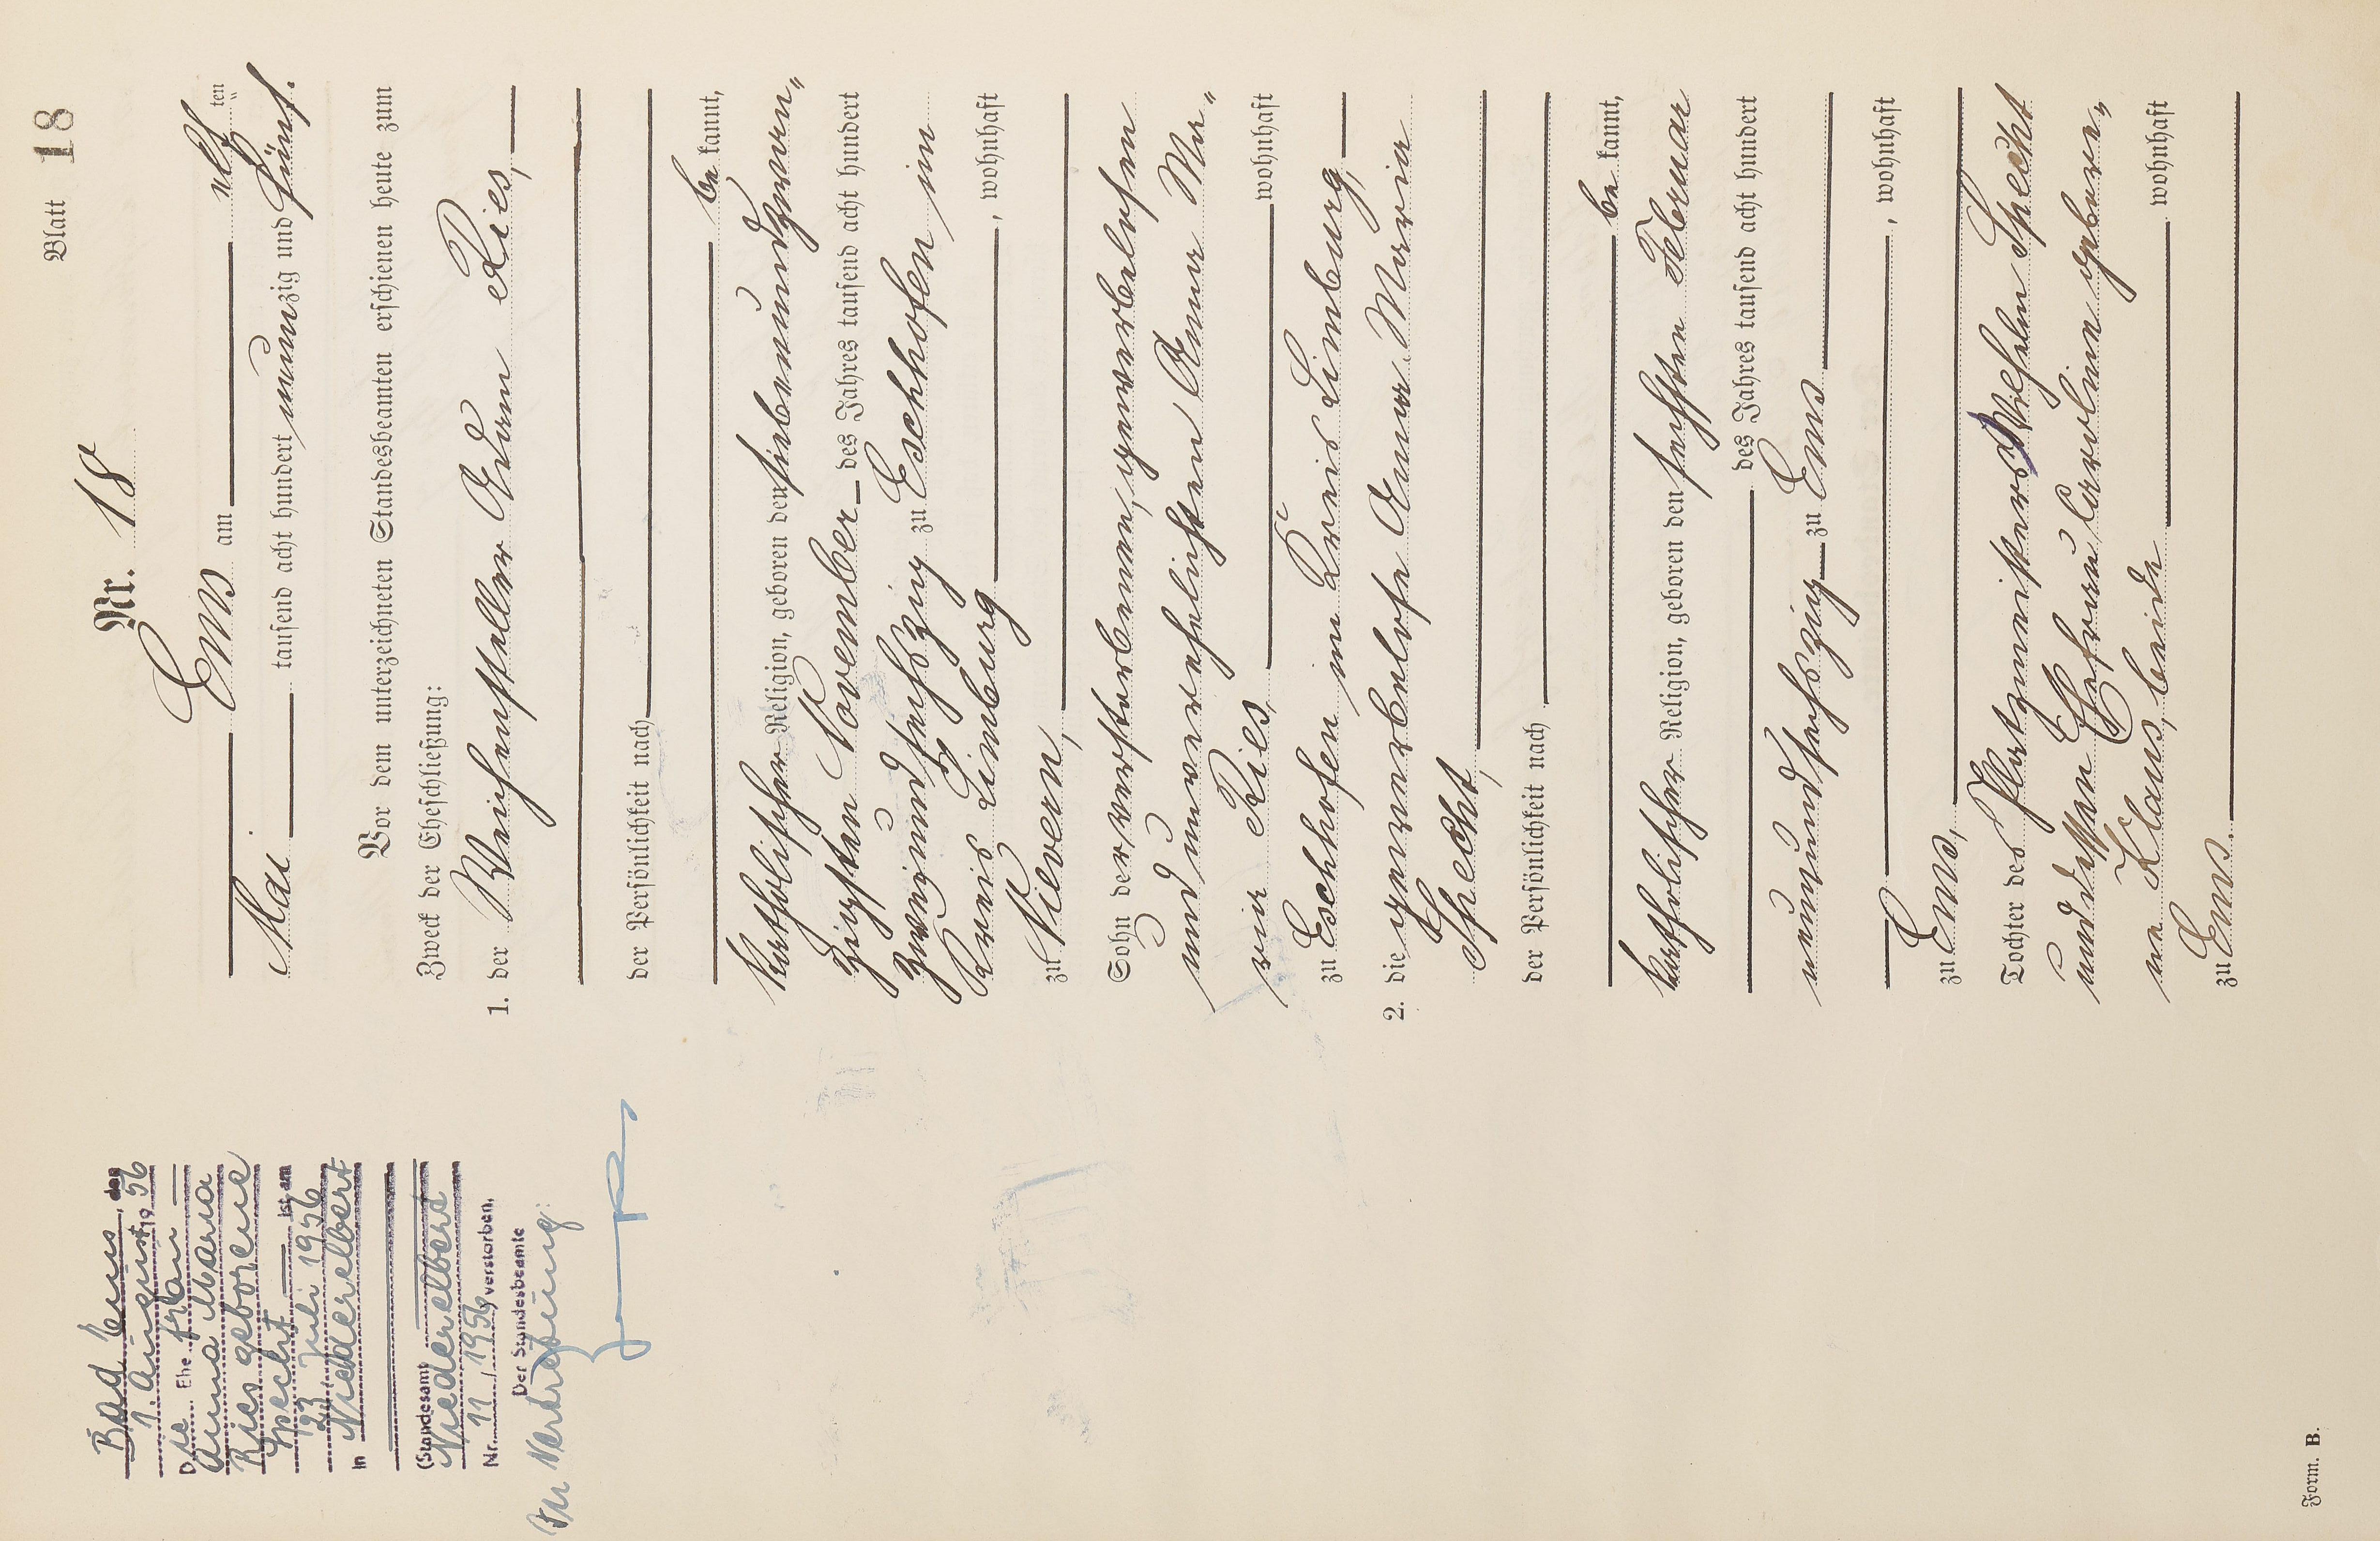 Blatt 18
Nr. 18
Ems am elf ten
Mai tausend acht hundert neunzig und fünf.
Vor dem unterzeichneten Standesbeamten erschienen heute zum
Zweck der Eheschließung:
1. der Weichensteller Adam Ries,
der Persönlichkeit nach
be kannt,
katholischer Religion, geboren den siebenundzwan„
zigsten November des Jahres tausend acht hundert
zweiundsechszig zu Eschhofen im
Kreis Limburg, wohnhaft
zu Nievern,
Sohn der verstorbenen, gewerbelosen
und unverehelichten Anna Ma„
ria Ries, wohnhaft
zu Eschhofen im Kreis Limburg,
2. die gewerbelose Anna Maria
Specht,
der Persönlichkeit nach
be kannt,
katholischer Religion, geboren den sechsten Februar
des Jahres tausend acht hundert
neunundsechszig zu Ems
, wohnhaft
zu Ems,
Tochter des Platzmeisters Wilhelm Specht
und dessen Ehefrau Caroline gebore„
ne Klaus, beide wohnhaft
zu Ems.
Bad Ems, den
1. August 19 56
Die Ehe frau
Anna Maria
Ries geborene
Specht ist am
23. Juli 1956
in Niederelbert
(Standesamt
Niederelbert
Nr. 11/1956) verstorben.
Der Standesbeamte
In Vertretung:
Form. B.